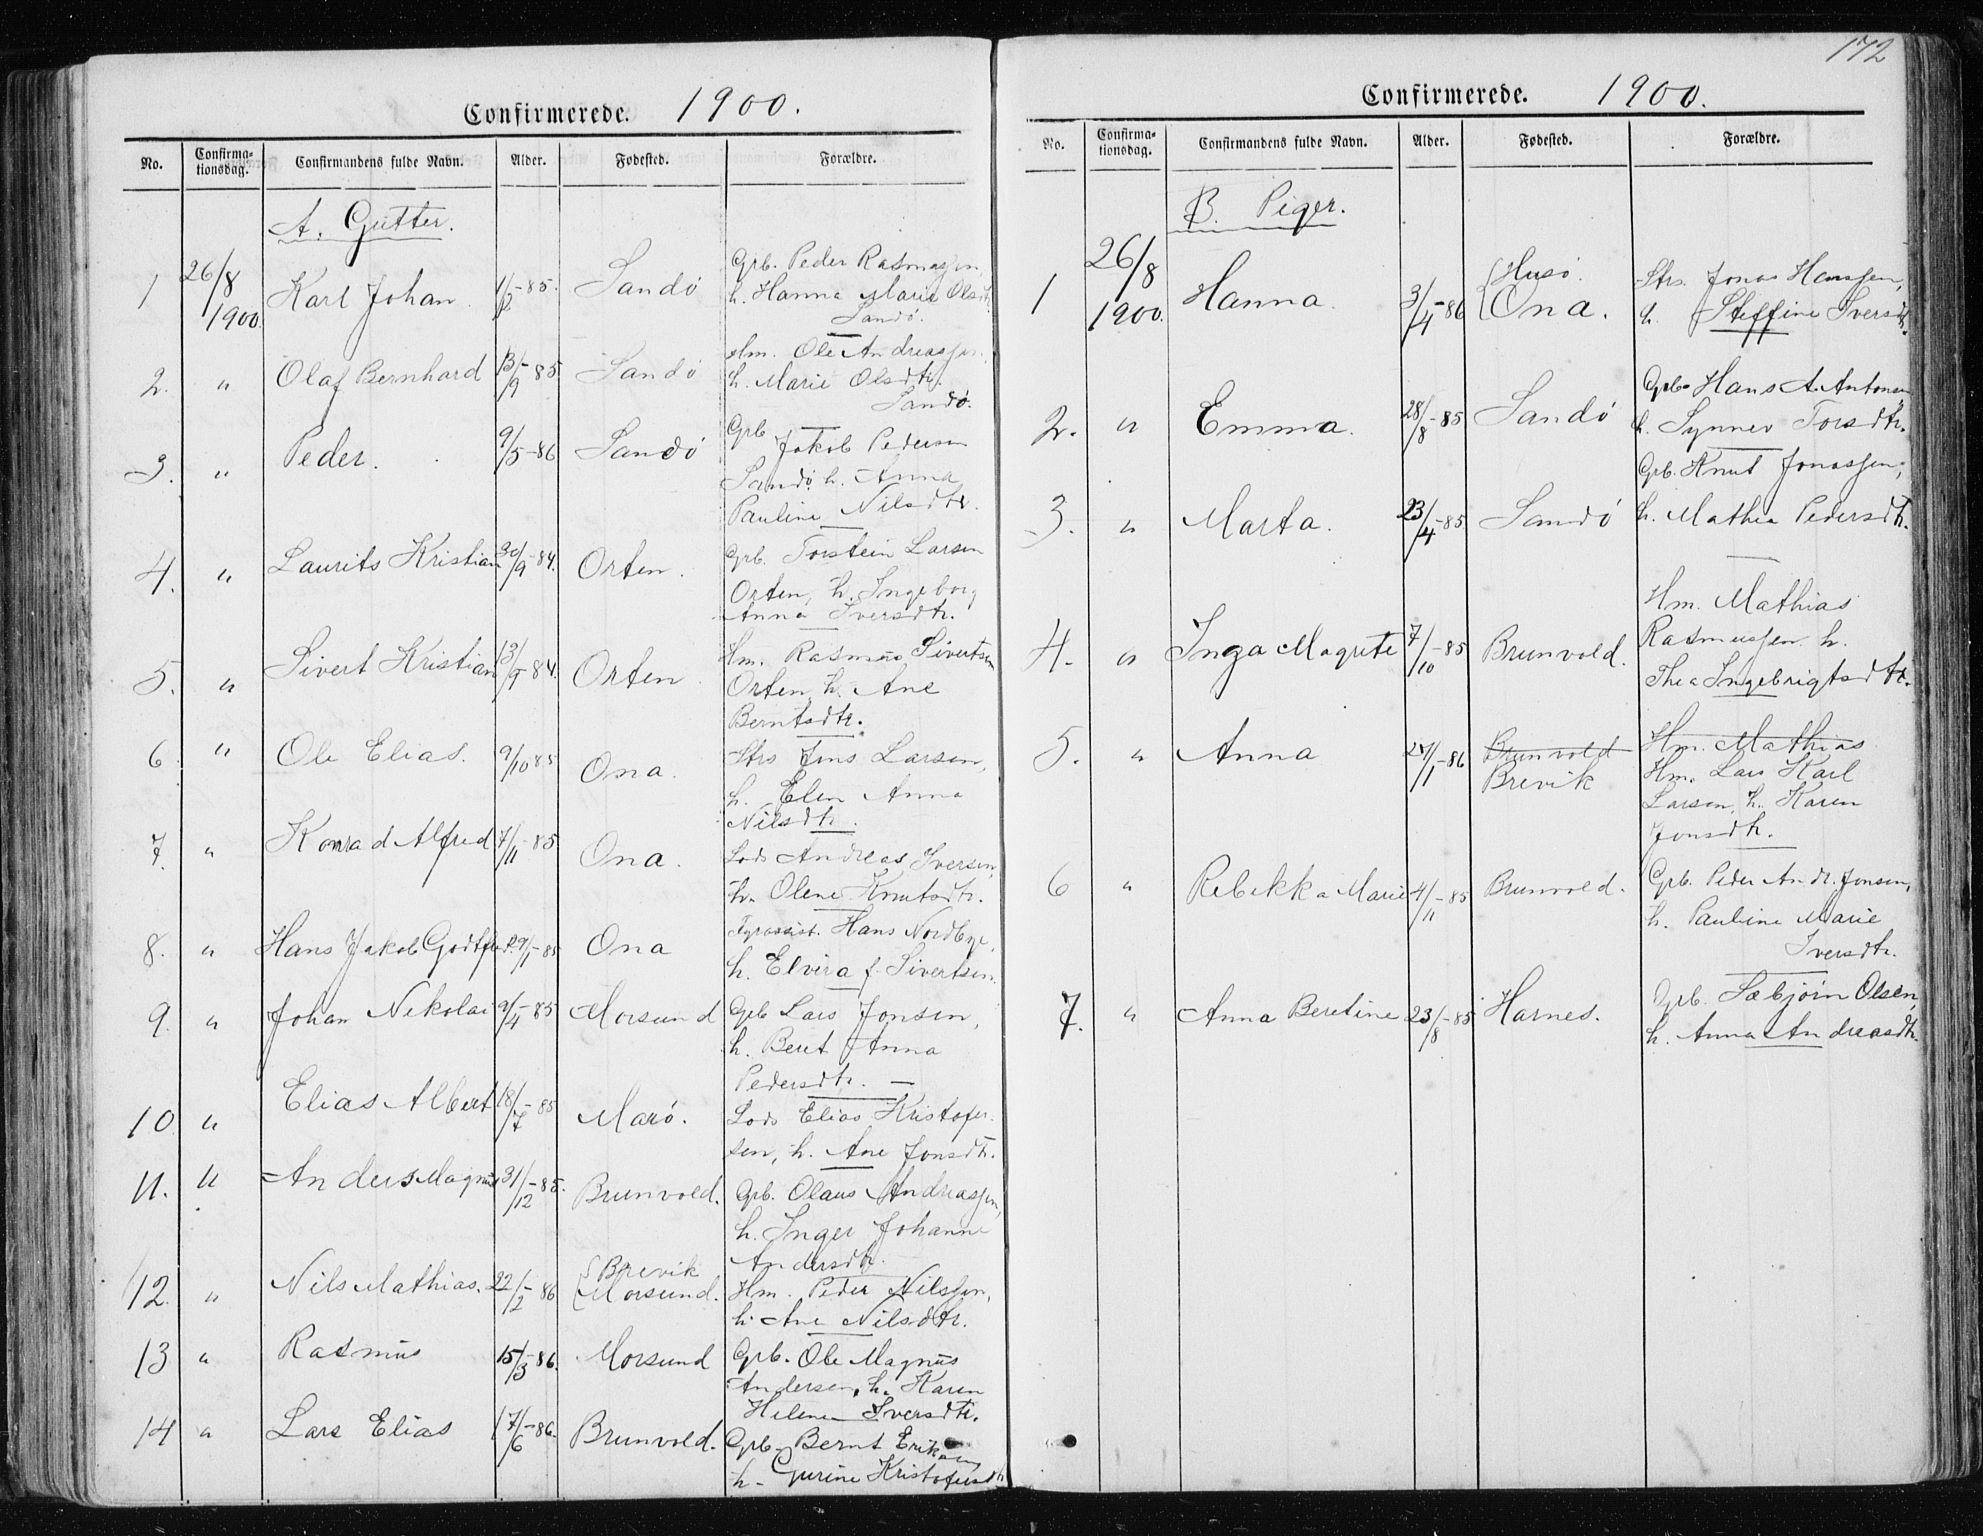 Confirmerede. 1900.
No. Confirma-tionsdag. Confirmandens fulde Navn. Alder. Fødested. Forældre.
A. Gutter.
1 26/8 1900. Karl Johan 1/2-85. Sandö Grb. Peder Rasmussen,
h. Hanna Marie Olsdtr.
Sandö.
2. " Olaf Bernhard 13/9-85 Sandö Hm. Ole Andreassen
h. Marie Olsdtr.
Sandö.
3. " Peder. 9/5-86 Sandö Grb Jakob Pedersen
Sandö, h. Anna
Pauline Nilsdtr.
4. " Laurits Kristian 30/9-84. Orten. Grb. Torstein Larsen
Orten, h. Ingeborg
Anna Iversdtr.
5. " Sivert Kristian 13/9-84. Orten Hm. Rasmus Sivertsen
Orten, h. Ane
Berntsdtr.
6 " Ole Elias. 9/10 85 Ona. Strs Jens Larsen,
h. Elen Anna
Nilsdtr.
7. " Konrad Alfred 7/11-85 Ona. Lods Andreas Iversen,
h. Olene Knutsdtr.
8. " Hans Jakob Godtfred. 29/1-85 Ona Fyrassist. Hans Nordbye,
h. Elvira f. Sivertsen.
9. " Johan Nikolai 9/4-85 Morsund Grb Lars Jonsen,
h. Beret Anna
Pedersdtr.
10 " Elias Albert 18/7-85 Marö. Lods Elias Kristofer-
sen, h. Ane Jonsdtr.
11. " Anders Magnus 31/12-85. Brunvold. Grb. Olaus Andreassen,
h. Inger Johanne
Andersdtr.
12. " Nils Mathias. 22/2-86 {Brevik Morsund. Hm. Peder Nilssen,
h. Ane Nilsdtr.
13 " Rasmus 15/3-86. Morsund Grb. Ole Magnus
Andersen, h. Karen
Helene Iversdtr.
14 " Lars Elias 17/6-86. Brunvold. Grb. Bernt Eriksen
h. Gurine Kristofersdtr
172
Confirmerede. 1900.
No. Confirma-tionsdag. Confirmandens fulde Navn. Alder. Fødested. Forældre.
B. Piger.
1 26/8 1900. Hanna. 3/4-86 {Husö. Ona. Strs. Jonas Hanssen,
h. Steffine Iversdtr.
2. " Emma. 28/8-85 Sandö Grb. Hans A. Antonsen
h. Synnev Torsdtr.
3. " Marta. 23/4-85 Sandö Grb. Knut Jonassen,
h. Mathea Pedersdtr.
4. " Inga Magrete 7/10-85 Brunvold. Hm. Mathias
Rasmussen h.
Thea Ingebrigtsdtr.
5. " Anna 27/1-86 Brunvold Brevik Hm. Mathias
Hm. Lars Karl
Larsen, h. Karen
Jonsdtr.
6 " Rebekka Marie 4/11-85 Brunvold. Grb. Peder Andr. Jonsen,
h. Pauline Marie
Iversdtr.
7. " Anna Beretine 23/8-85 Harnes. Grb. Sæbjörn Olsen,
h. Anna Andreasdtr.